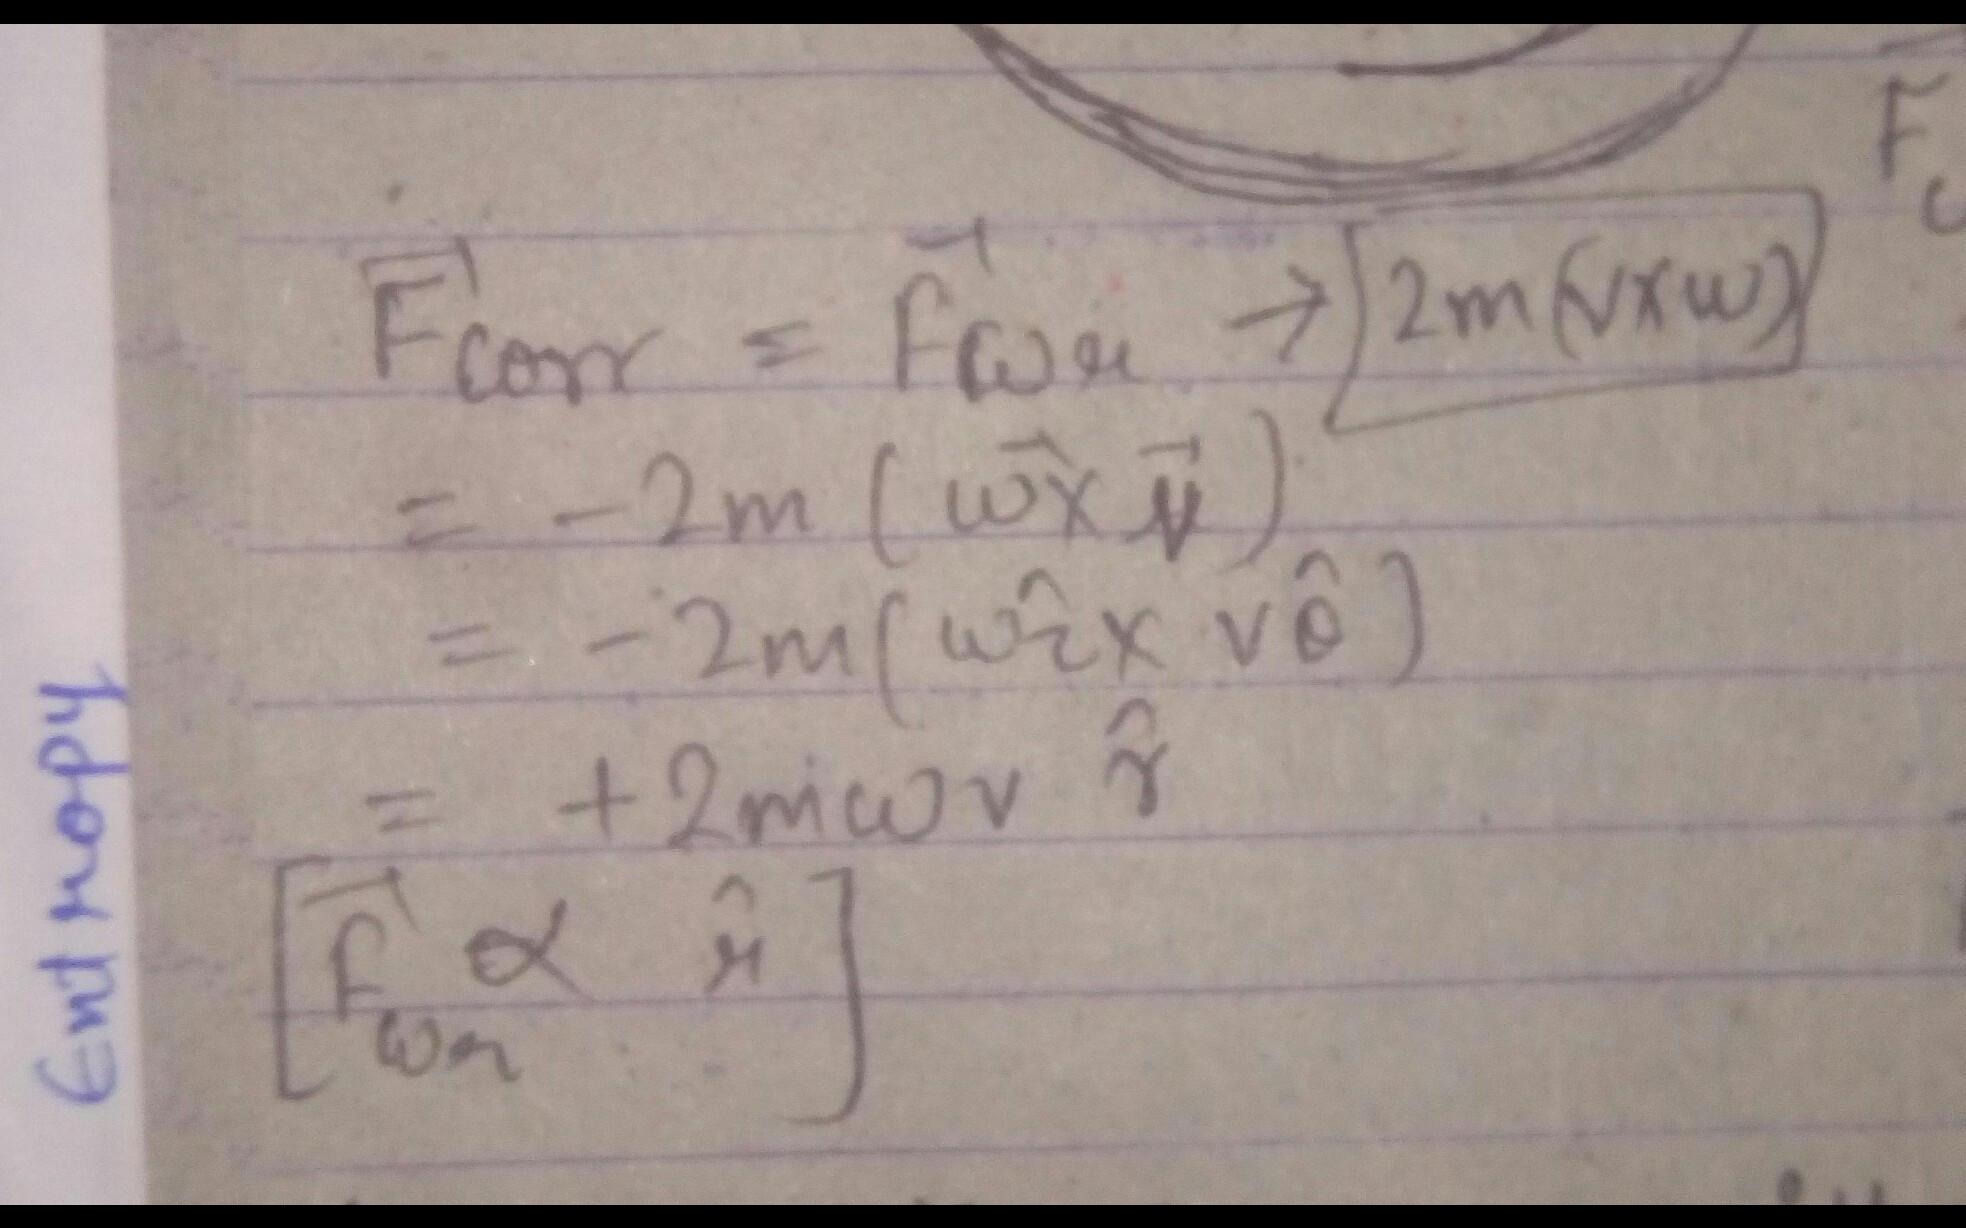 F
c
F⃗corr = F⃗cor → 2m(v×ω)
= -2m (ω⃗× v⃗)
= -2m(ωẑ× vθ̂)
= +2mωv r̂
[F⃗cor ∝ r̂]
Entropy